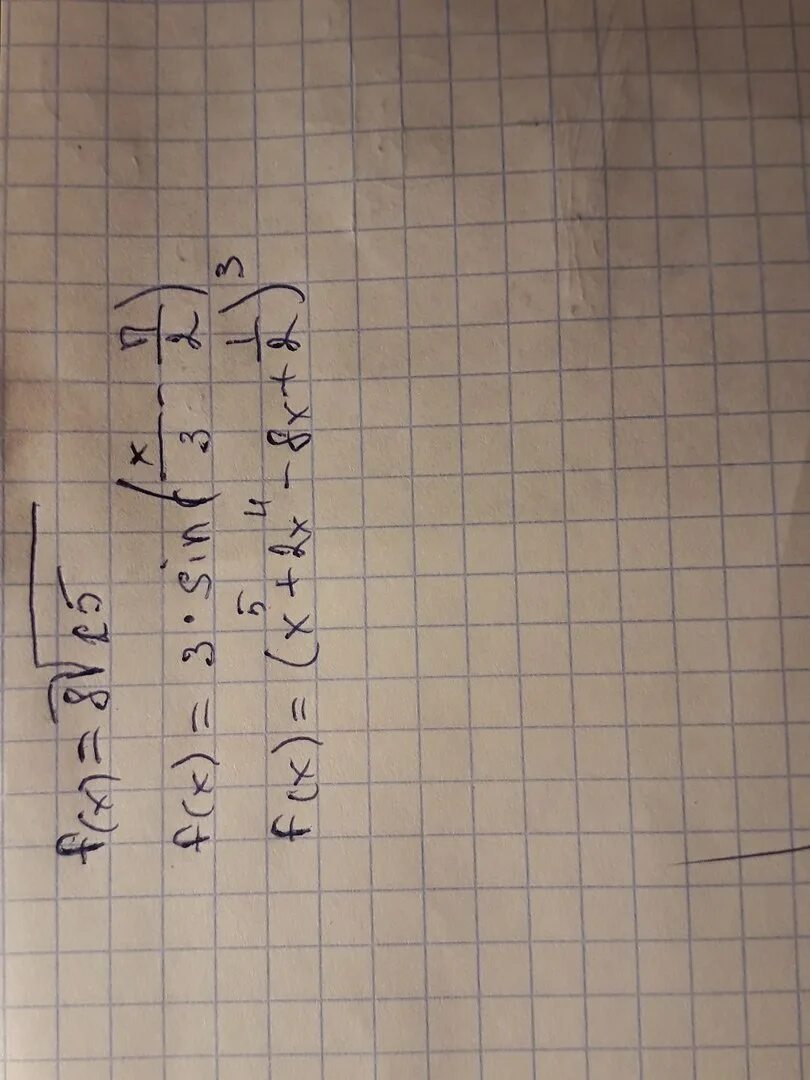 f(x) = 8√25
f(x) = 3 · sin(x/3 - π/2)
f(x) = (x⁵ + 2x⁴ - 8x + 1/2)³